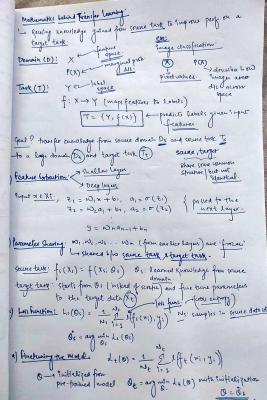 Mathematics behind Transfer Learning:
↳ Reusing knowledge gained from source task to improve perf on a target task.
Domain (D): X → feature space
P(X) → marginal prob dis.
eg: Image classification
(X) P(X)
Pixel values
describes how image areas dis across space
Task (T): Y → label space
f: X → Y (map features to labels)
T = {Y, f(x)} → predicts labels given input features
Goal? transfer knowledge from source domain Ds and source task Ts to a target domain Dt and target task Tt
source, target
share some common structure but not identical
Feature Extraction: Shallow layers
Deep layers
Input x ∈ Xs.
z₁ = w₁x + b₁, a₁ = σ(z₁)
z₂ = w₂a₁ + b₂, a₂ = σ(z₂)
passed to the next layer
y = wₙaₙ₋₁ + bₙ
Parameter Sharing: w₁, w₂ ... wₘ (from earlier layers) are 'frozen'
↳ Shared b/w source task & target task.
Source task: fs(Xs) = f(Xs; θs)
θs learned knowledge from source domain
target task: Starts from θs (instead of scratch) and fine tune parameters to the target data
Loss func. (cross entropy)
Loss Function: Ls(θs) = 1/Ns Σ l(f(xi), yi)
Ns samples in source dataset
θs* = arg min Ls(θs)
Finetuning the Model: Lt(θ) = 1/Nt Σ l(f(xi, yi))
θ → initialized from pre-trained model
θt = arg min Lt(θ) with initialization θ = θs